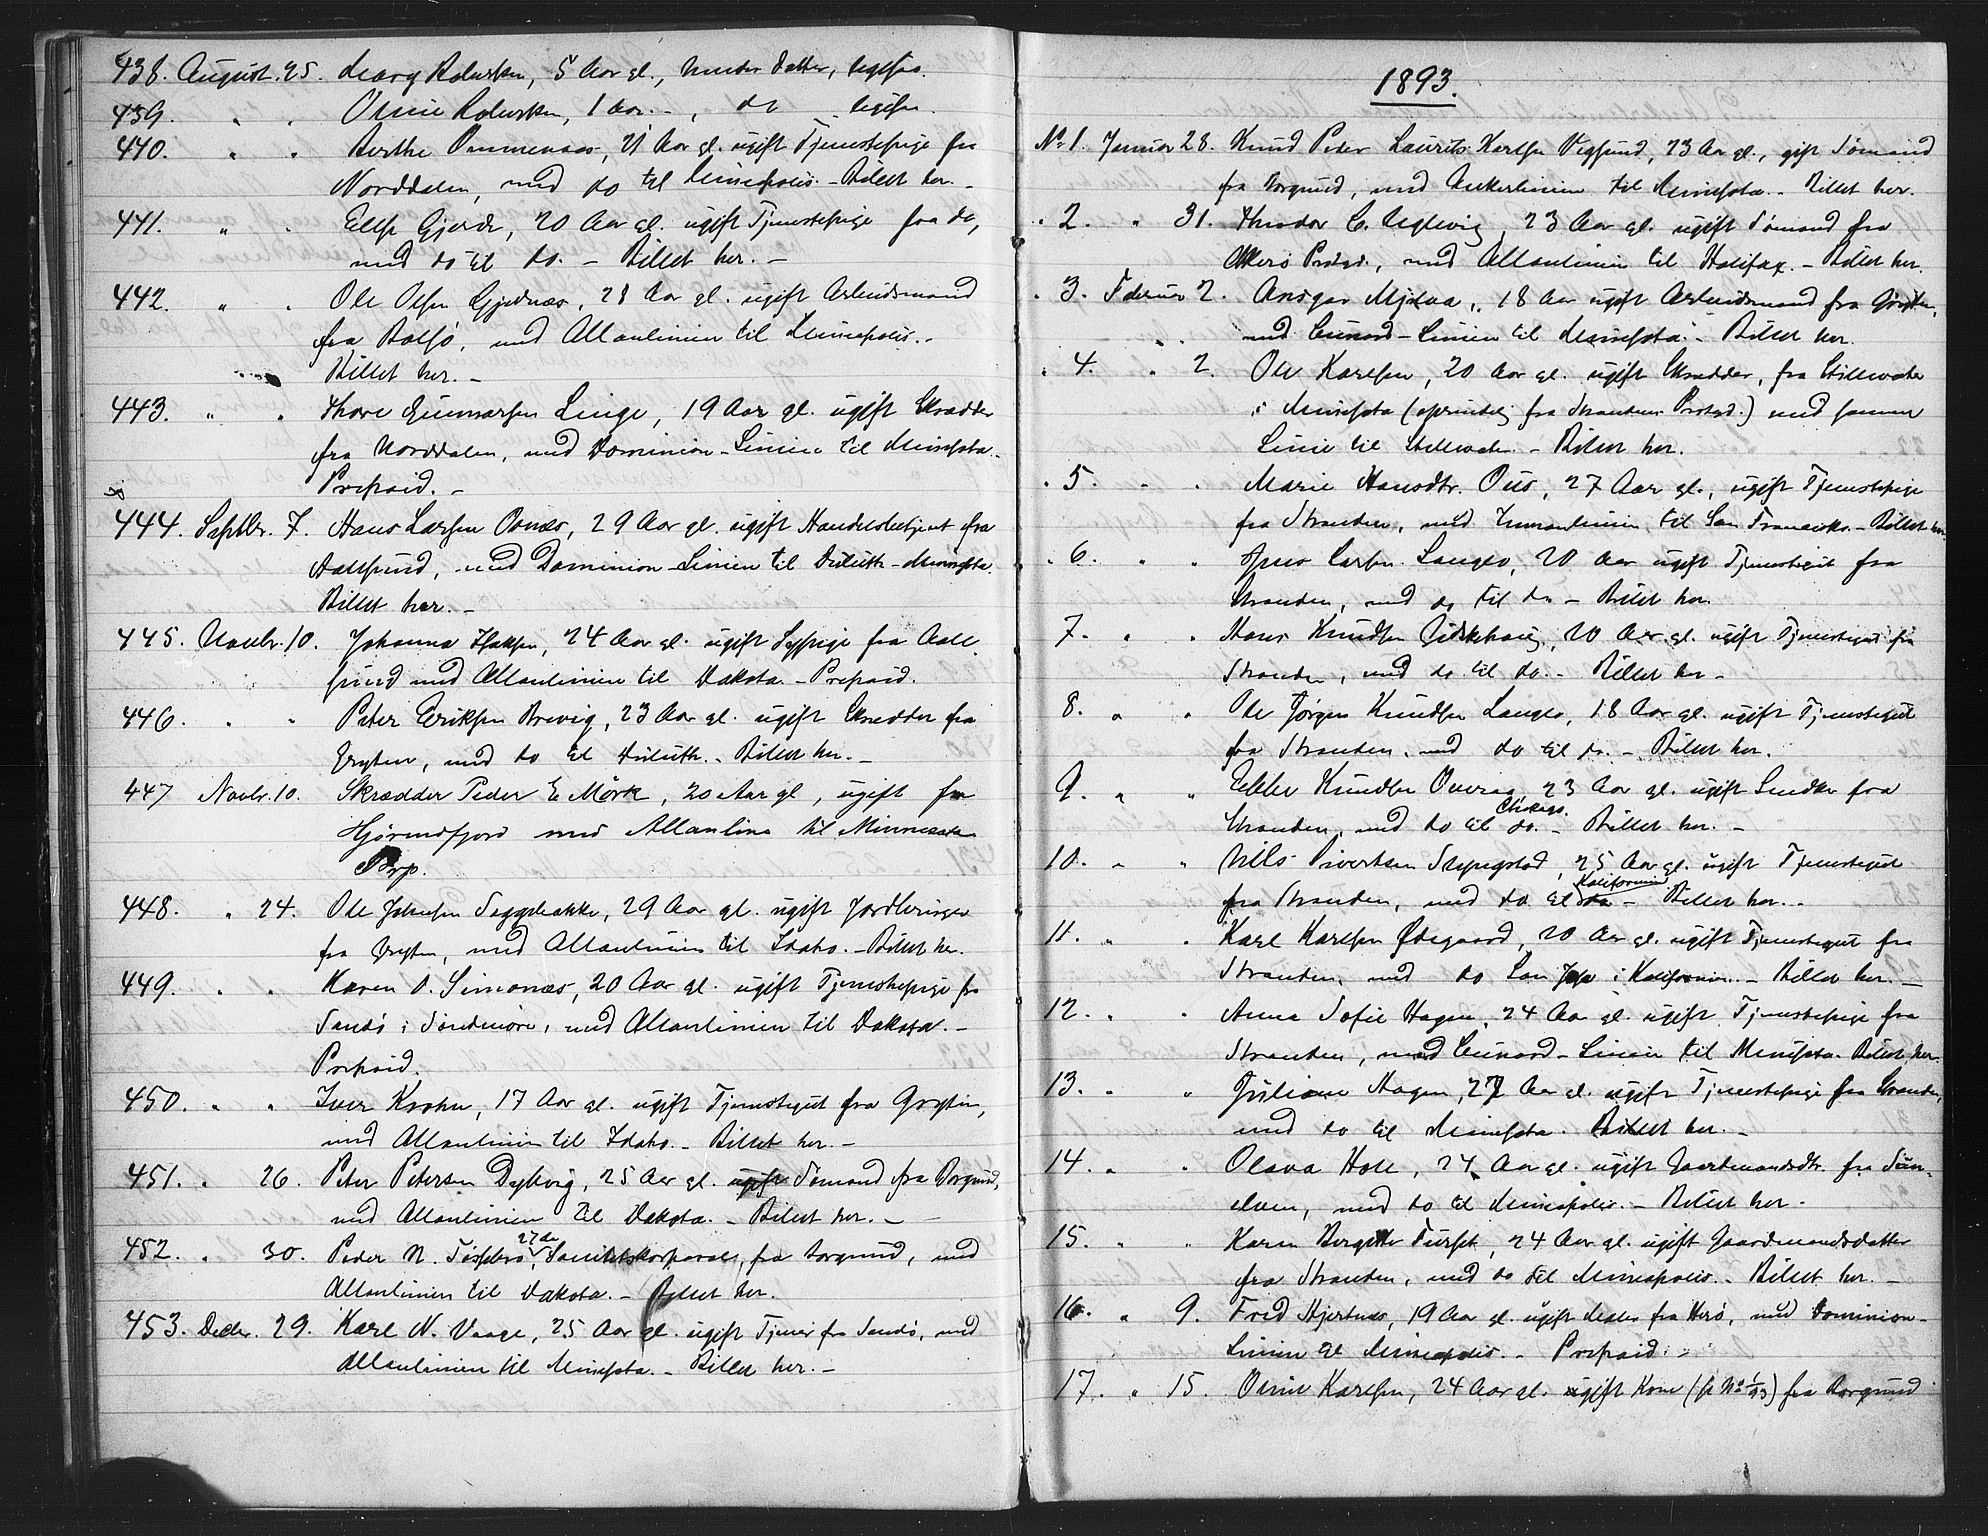 438. August. 25. Mary 5 Aar gl., Datter, ligesaa.
439. " " 1 Aar. - , do ligesaa.
440. " " Berthe Ommenaas, 21 Aar gl. ugift Tjenestepige fra
Norddalen, med do til Mineapolis. - Billet her. -
441. " " Gjerde, 20 Aar gl. ugift Tjenestepige fra do,
med do til do. - Billet her. -
442. " " Ole Olsen 28 Aar gl. ugift Arbeidsmand
fra Bolsø, med Allanlinien til Mineapolis. -
Billet her. -
443. " " Thore Gunnarsen Linge, 19 Aar gl. ugift Skrædder
fra Norddalen, med Dominion-Linien til Minesota. -
Prepaid. -
444. Septbr. 7. Hans Larsen 29 Aar gl. ugift Handelsbetjent fra
Aalesund, med Dominion-Linien til Duluth - Minesota.
Billet her. -
445. Novbr. 10. Johanna Isaksen, 24 Aar gl. ugift Sypige fra Aale-
sund med Allanlinien til Dakota. - Prepaid.
446. " " Peter Eriksen Brevig, 23 Aar gl. ugift Skrædder fra
Gryten, med do til Duluth. - Billet her. -
447 Novbr. 10. Skrædder Peder E Mørk, 20 Aar gl, ugift fra
Hjørundfjord med Allanline til Minnesota
Prp.
448. " 24. Ole Johnsen 29 Aar gl. ugift
fra Gryten, med Allanlinien til Idaho. - Billet her.
449. " " Karen O. Simonæs, 20 Aar gl. ugift Tjenestepige fra
Sandø i Søndmøre, med Allanlinien til Dakota. -
Prepaid.
450. " " Iver Krohn, 17 Aar gl. ugift Tjenestegut fra Gryten,
med Allanlinien til Idaho. - Billet her. -
451. " 26. Peter Petersen Dybvig, 25 Aar gl. ugift Sømand fra Borgund,
med Allanlinien til Dakota. - Billet her. -
452. " 30. Peder N. 27 Aar Sanitetskorporal, fra Borgund, med
Allanlinien til Dakota. - Billet her.
453. Decbr. 29. Karl N. Vaage, 25 Aar gl. ugift Tjener fra Sandø, med
Allanlinien til Minesota. - Billet her. -
1893.
No 1. Januar 28. Knud Peder Laurits Karlsen Vegsund, 23 Aar gl., gift Sømand
fra Borgund, med Ankerlinien til Minesota. - Billet her.
" 2. " 31. Theodor C. 23 Aar gl. ugift Sømand fra
Præstgd., med Allanlinien til Halifax. - Billet her.
" 3. Februar 2. Ansgar Mjelva, 18 Aar ugift Arbeidsmand fra Gryten,
med Cunard-Linien til Minesota. - Billet her.
" 4. " 2. Ole Karlsen, 20 Aar gl. ugift Skrædder, fra Stillwater
i Minesota (oprindelig fra Strandens Præstgd.) med samme
Linie til Stillwater. - Billet her.
" 5. " " Marie Hansdtr. Ous, 27 Aar gl., ugift Tjenestepige
fra Stranden, med Inmanlinien, til San Francisko. - Billet her.
" 6. " " Jens Larsen Langlo, 20 Aar ugift Tjenestegut fra
Stranden, med do til do. - Billet her.
7. " " Hans Knudsen 20 Aar gl. ugift Tjenestegut fra
Stranden, med do til do. - Billet her -
8. " " Ole Jørgen Knudsen Langlo, 18 Aar gl. ugift Tjenestegut
fra Stranden, med do til do. - Billet her.
9. " " Knudsen 23 Aar gl. ugift Snedker fra
Stranden, med do til do. Chicago. - Billet her. -
10. " " Nils Sivertsen 25 Aar gl. ugift Tjenestegut
fra Stranden, med do til do Kalifornien - Billet her. -
11. " " Karl Karlsen Ødegaard, 20 Aar gl. ugift Tjenestegut fra
Stranden, med do San Jose i Kalifornien. - Billet her. -
12. " " Anna Sofie Hagen, 24 Aar gl. ugift Tjenestepige fra
Stranden, med Cunard-Linien til Minesota. Billet her.
13. " " Juliane Hagen, 27 Aar gl. ugift Tjenestepige fra Stranden,
med do til Minesota. Billet her. -
14. " " Olava Hole, 24 Aar gl. ugift Gaardmandsdtr. fra Sun-
elven, med do til Mineapolis. - Billet her. -
15. " " Karen Bergitte Furset, 24 Aar gl. ugift Gaardmandsdatter
fra Stranden, med do til Mineapolis. - Billet her. -
16. " 9. Fred Hjertnæs, 19 Aar gl. ugift fra Herø, med Dominion-
Linien til Mineapolis. - Prepaid. -
17. " 15. Oline Karlsen, 24 Aar gl. gift Kone (se No 1/93) fra Borgund